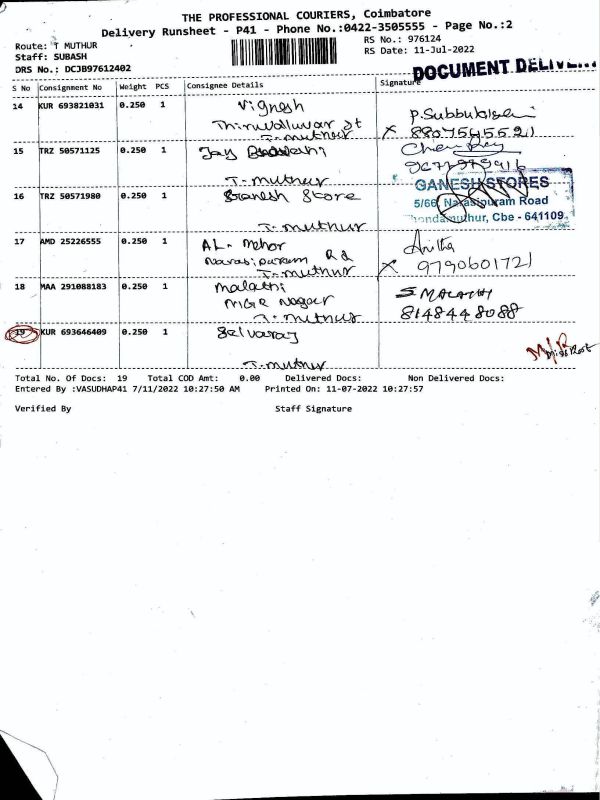 THE PROFESSIONAL COURIERS, Coimbatore
Delivery Runsheet - P41 - Phone No.:0422-3505555 - Page No.:2
Route: T MUTHUR
RS No.: 976124
Staff: SUBASH
RS Date: 11-Jul-2022
DRS No.: DCJB97612402
DOCUMENT
S No Consignment No Weight PCS Consignee Details Signature
14 KUR 693821031 0.250 1 Vignesh
Thiruvalluvar st
T-muthur
15 TRZ 50571125 0.250 1 Jay
T-muthur
16 TRZ 50571980 0.250 1 Ganesh Store
T-muthur
GANESH STORES
5/66, Narasipuram Road
Thondamuthur, Cbe - 641109.
17 AMD 25226555 0.250 1 AL-
Narasipuram Rd
T-muthur
Anitha
X 9790601721
18 MAA 291088183 0.250 1 malathi
MGR Nagar
T-muthur
S MALATHI
8148448088
19 KUR 693646409 0.250 1 Selvaraj
T-muthur
Total No. Of Docs: 19 Total COD Amt: 0.00 Delivered Docs: Non Delivered Docs:
Entered By :VASUDHAP41 7/11/2022 10:27:50 AM Printed On: 11-07-2022 10:27:57
Verified By Staff Signature